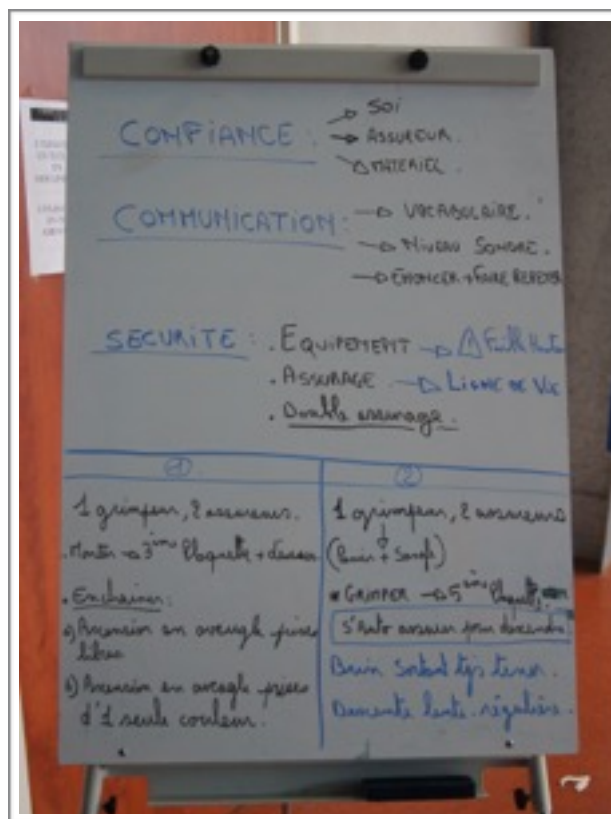 CONFIANCE : → SOI
→ ASSUREUR.
→ MATERIEL
COMMUNICATION : → VOCABULAIRE.
→ NIVEAU SONORE.
→ ENONCER + FAIRE REPETER
SECURITE : . EQUIPEMENT →
. ASSURAGE → LIGNE DE VIE
. Double assurage.
①
1 grimpeur, 2 assureurs.
. Monter → 3ème Plaquette +
. Enchainer :
a) Ascension en aveugle prises
libres
b) Ascension en aveugle prises
d'1 seule couleur.
②
1 grimpeur, 2 assureurs
GRIMPER → 5ème Plaquette
S'Auto assurer pour descendre
Brin Sortant tjs tenu.
Descente lente régulière.